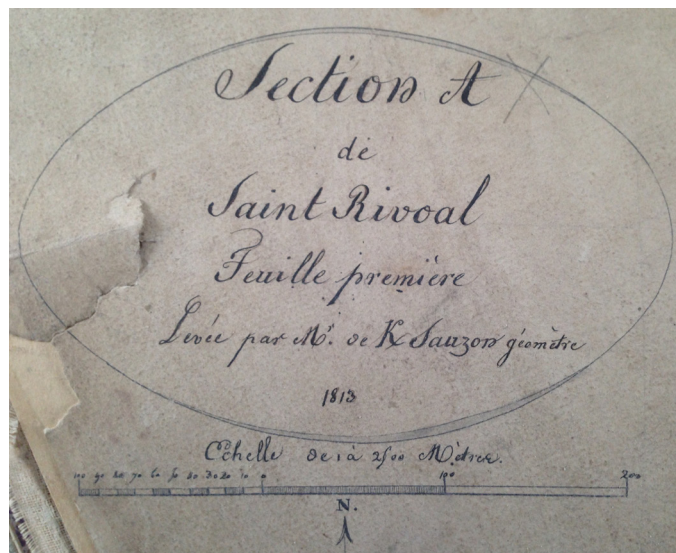 Section A
de
Saint Rivoal
Feuille première
Levée par Mr. de K Sauzon géomètre
1813
Echelle de 1 à 2500 Mètres.
100 90 80 70 60 50 40 30 20 10 0 100 200
N.